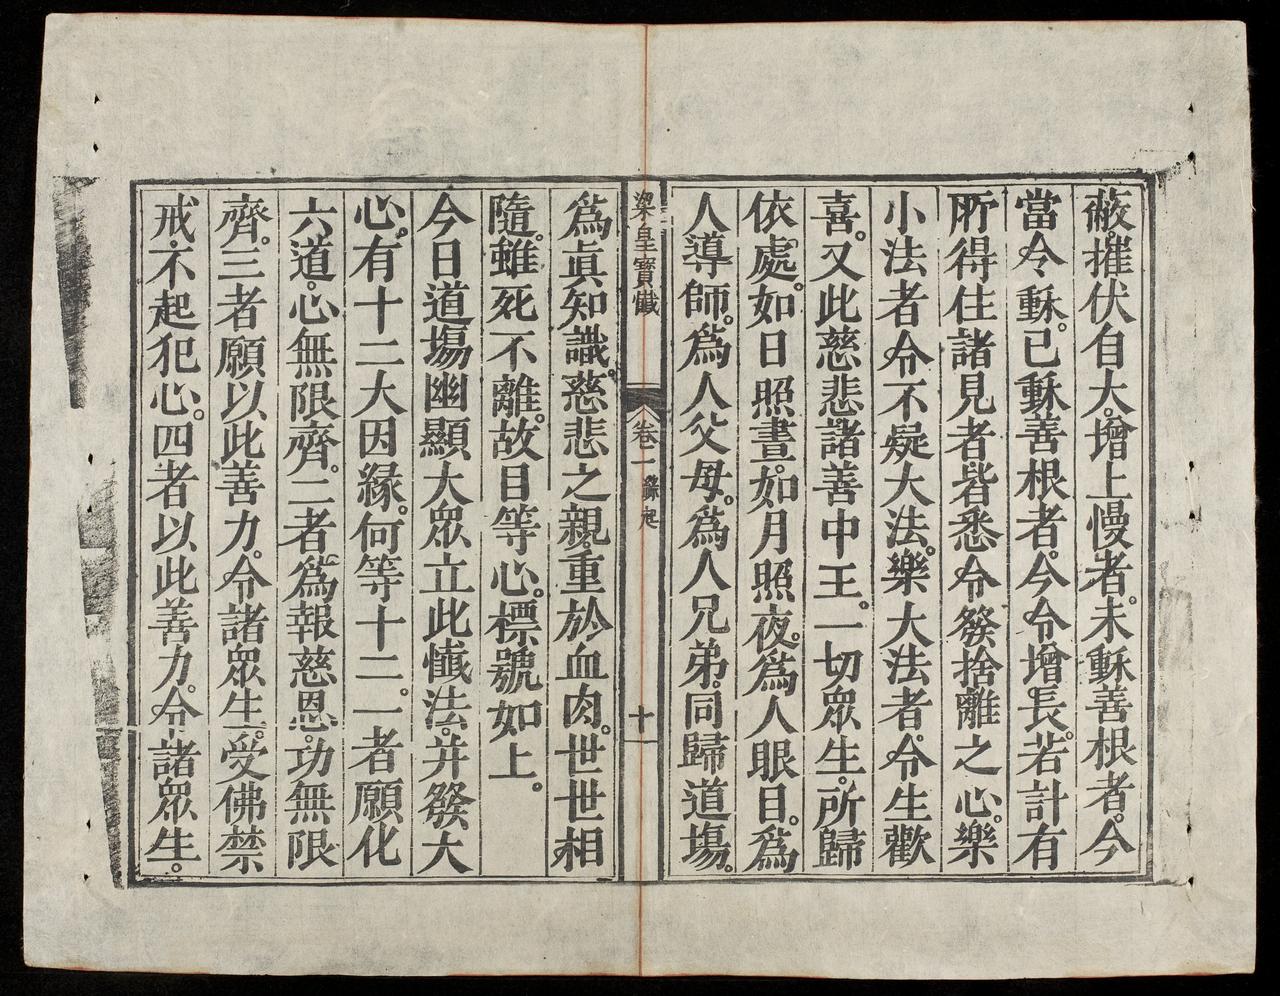 蔽。摧伏自大。增上慢者。未穌善根者。今
當令穌。已穌善根者。今令增長。若計有
所得住諸見者。皆悉令發捨離之心。樂
小法者。令不疑大法。樂大法者。令生歡
喜。又此慈悲。諸善中王。一切眾生。所歸
依處。如日照晝。如月照夜。為人眼目。為
人導師。為人父母。為人兄弟。同歸道場。
梁皇寶懺 卷二 十
為真知識。慈悲之親。重於血肉。世世相
隨。雖死不離。故目等心。標號如上。
今日道場幽顯大眾。立此懺法。并發大
心。有十二大因緣。何等十二。一者願化
六道。心無限齊。二者。為報慈恩。功無限
齊。三者願以此善力。令諸眾生。受佛禁
戒。不起犯心。四者以此善力。令諸眾生。